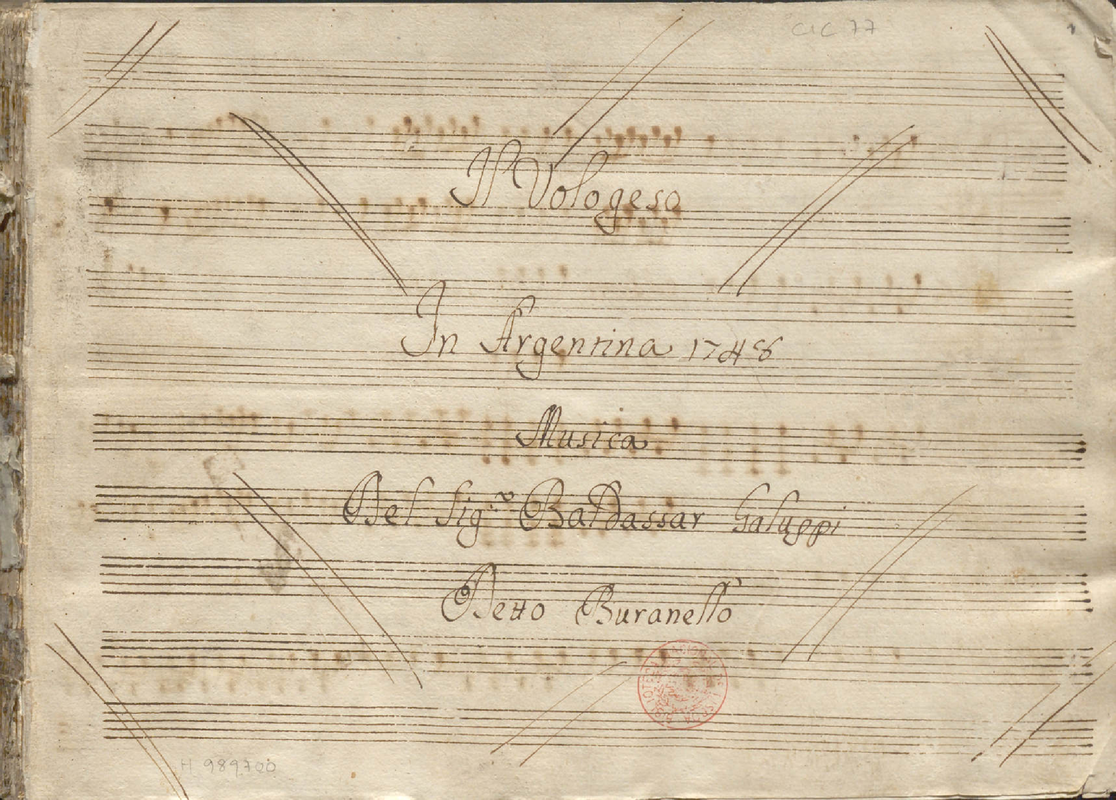 CIC 77
Il Vologeso
In Argentina 1748
Musica
Del Sig.r Baldassar Galuppi
Detto Buranello
H. 989700